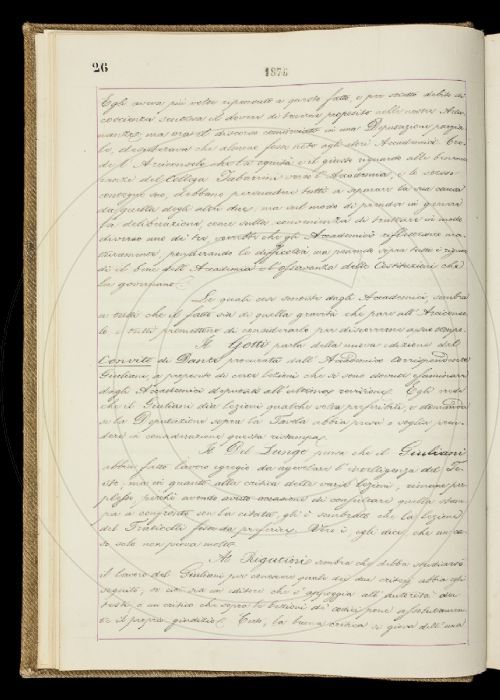 26
1875
Egli aveva più volte ripensato a questo fatto, e per stretto debito di
coscienza sentiva il dovere di tenerne proposito nelle nostre Adu-
nanze; ma era il discorso cominciato in una Deputazione parzia-
le, desiderava che almeno fosse noto agli altri Accademici. Cre-
de l'Arciconsolo che la equità e il giusto riguardo alle beneme-
renze del Collega Tabarrini verso l'Accademia, e le stesse
convengono, debbano persuadere tutti a separare la sua causa
da quella degli altri due, ma sul modo di prender in genere
la deliberazione, come sulla convenienza di trattare in modo
diverso uno de' tre, vorrebbe che gli Accademici riflettessero ma-
turamente, ponderando le difficoltà, ma ponendo sopra tutto a riguar-
do il bene dell'Accademia e l'osservanza delle Costituzioni che
la governano.
Le quali cose sentite dagli Accademici, sembra
a tutti che il fatto sia di quella gravità che pare all'Arciconso-
lo e tutti promettono di considerarlo per discorrerne a suo tempo.
Il Gotti parla della nuova edizione del
Convito di Dante procurata dall'Accademico corrispondente
Giuliani, a proposito di certe lezioni che si sono dovute esaminare
dagli Accademici deputati all'ultima revisione. Egli vede
che il Giuliani dia lezioni qualche volta preferibili, e domanda
se la Deputazione sopra la Tavola abbia preso o voglia pren-
dere in considerazione questa ristampa.
Il Del Lungo pensa che il Giuliani
abbia fatto lavoro egregio da agevolare l'intelligenza del Te-
sto, ma in quanto alla critica delle varie lezioni, rimane per-
plesso perchè avendo avuto occasione di confrontare quella stam-
pa a confronto con la citata, gli è sembrato che la lezione
del Fraticelli fosse da preferirsi. Vero è, egli dice, che un pas-
so solo non prova molto.
Al Rigutini sembra che debba studiarsi
il lavoro del Giuliani per conoscere quale dei due critici abbia egli
seguiti, se cioè sia un editore che s'appoggia all'autorità dei
testi, o un critico che sopra le lezioni de' codici pone assolutamen-
te il proprio giudizio. Certo, la buona critica si giova dell'una